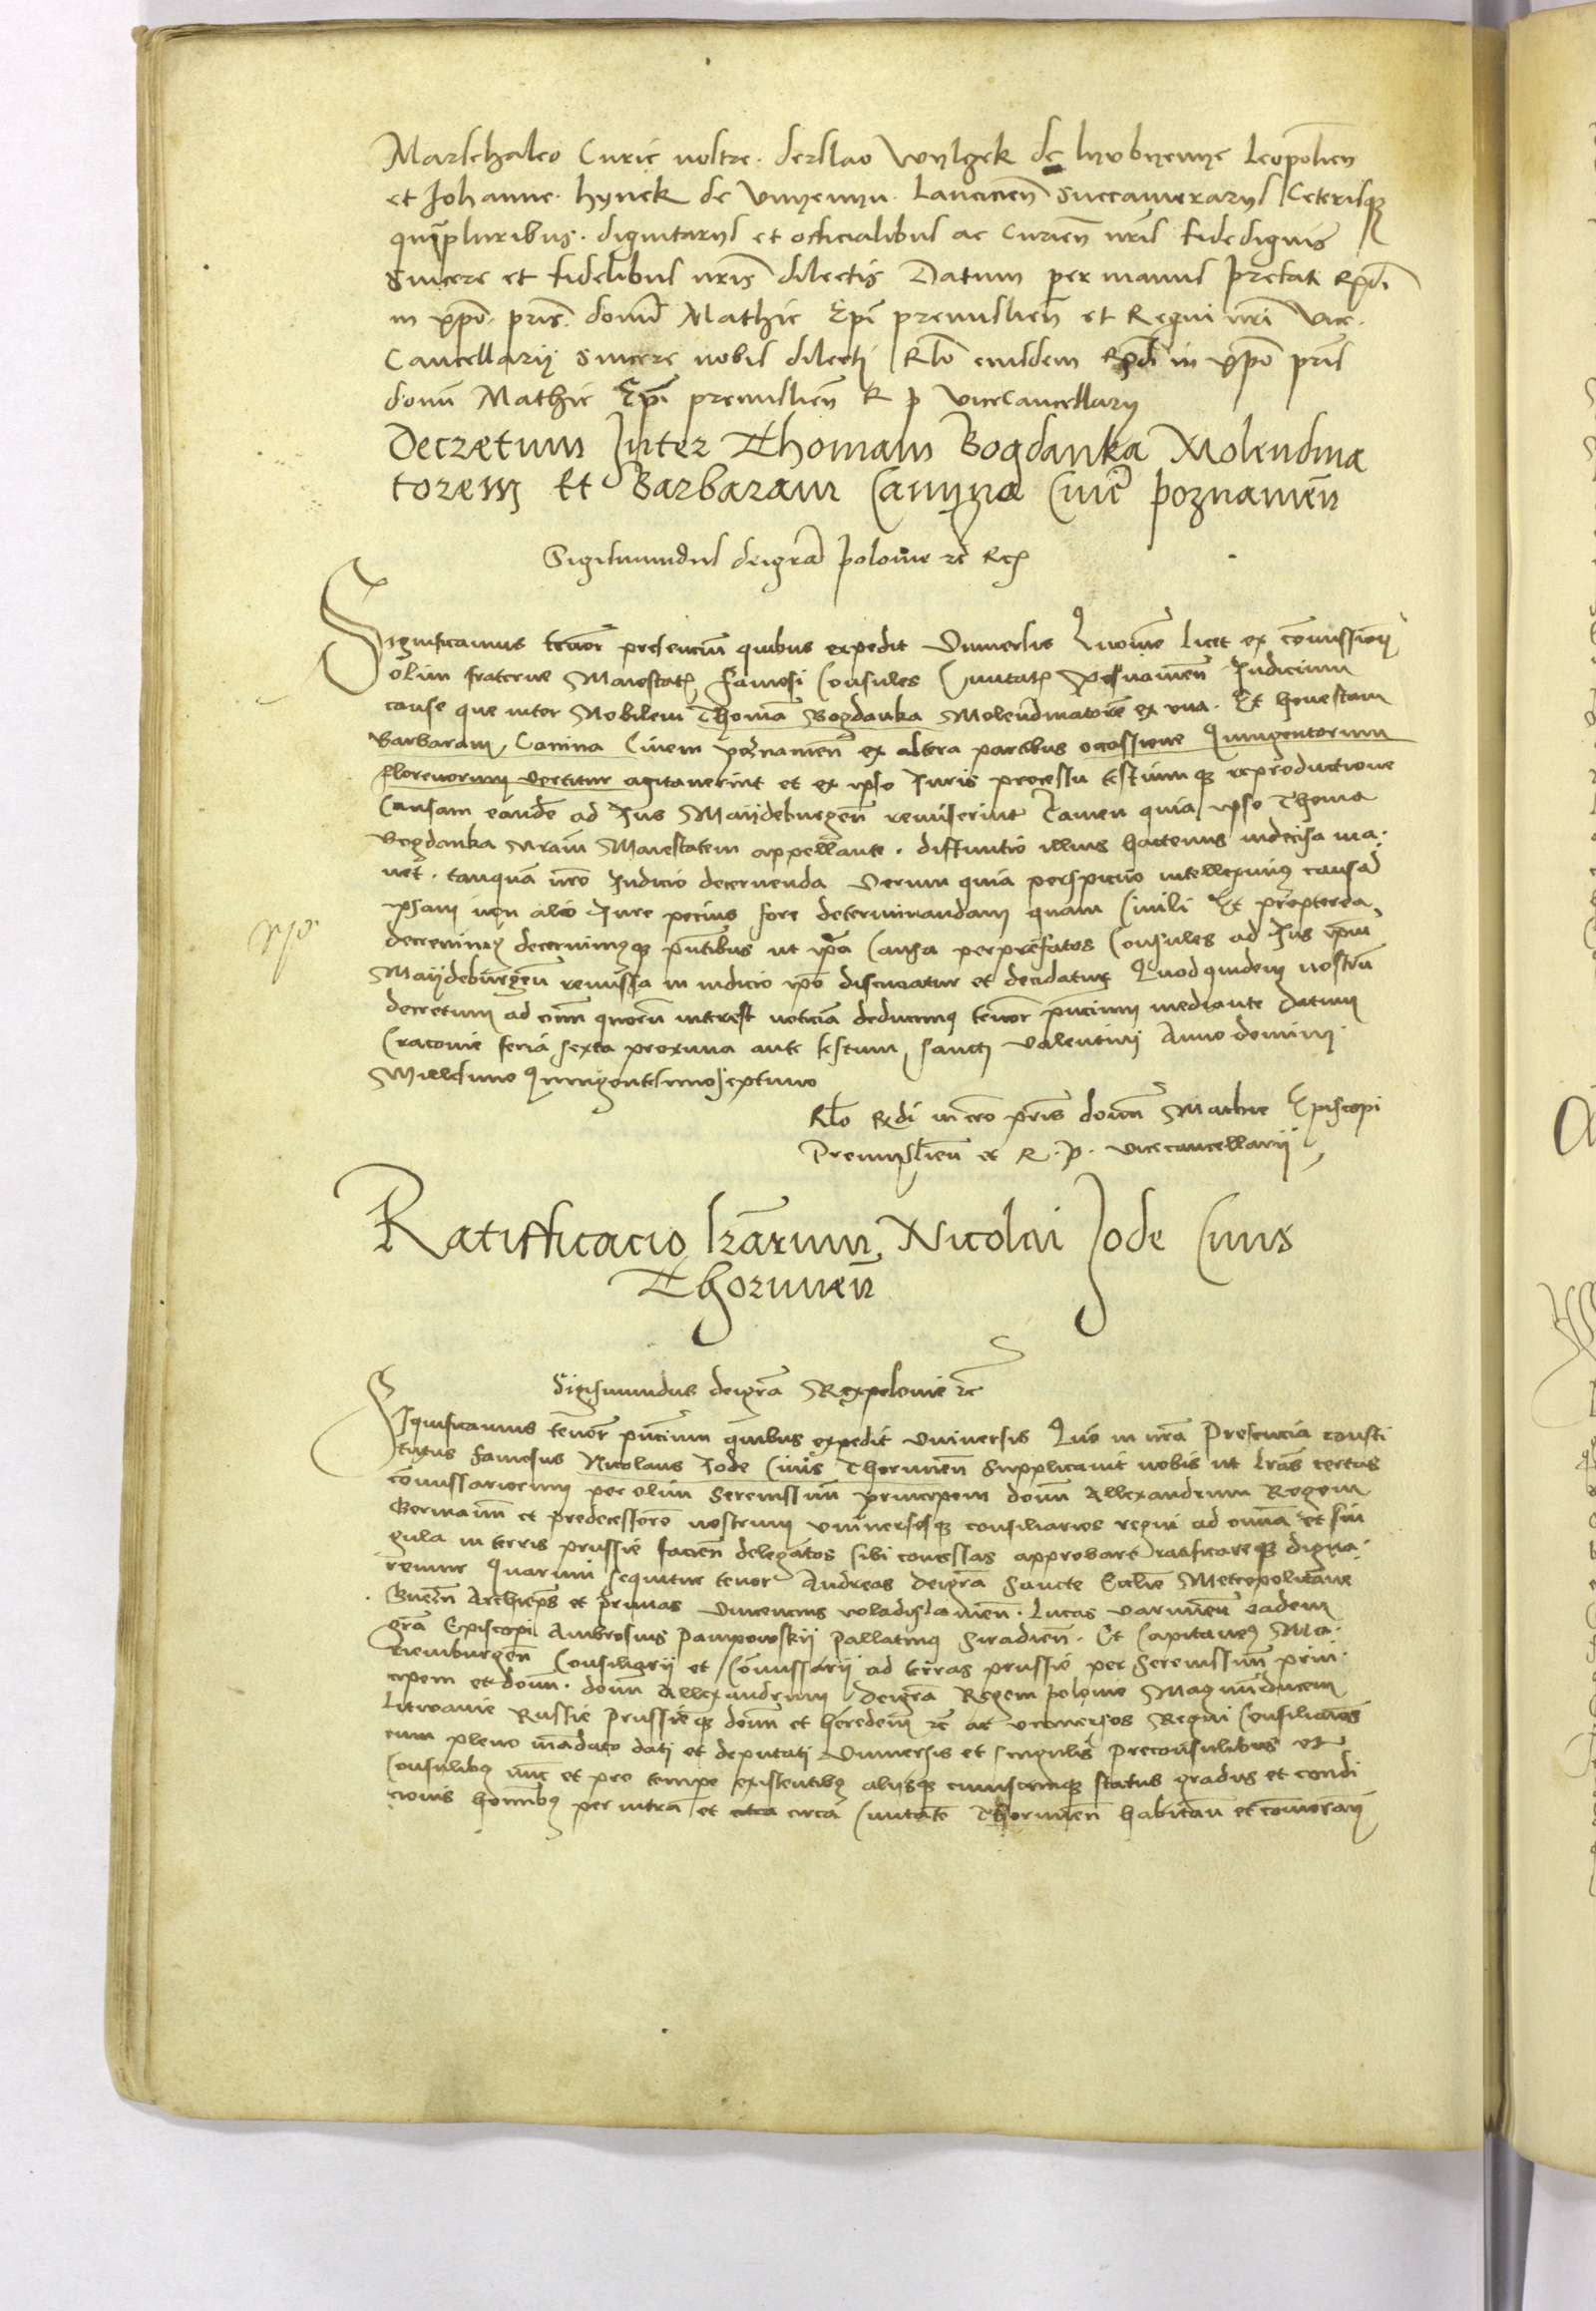 Marschalco Curie nostre. derslao wylczek de lyvbyenye Leopolien̄
et Johanne. hynek de vnyemyn. Lancicien̄ Succamerarys Ceterisqȝ
qui͞pluribus. dignitarys et officialibus ac Curien̄ nr̄is fidedignis
Sincere et fidelibus nr̄is dilectis Datum per manus prefati R͞pdi
in xp̄o. pris̄. domī Mathie Epī premislien̄ et Regni nrī vice.
Cancellarÿ sincere nobis dilecti Rl̄o eiusdem R͞pdi in xp̄o pris̄
domī Mathie Epī premislien̄ R p viceCancellary
Decretum Inter Thomam Bogdanka Molendina
torem Et Barbaram Canyna Ciuē poznamen̄
Sigismundus deigrā polonie ꝛc̄ Rex
Significamus tenor̄ presenciū quibus expedit Vniuersis Quoniā licet ex com̄issionȷ
olim fraterne Maiestatȝ famosi Consules Ciuitatȝ posnamen̄ Iudicium
cause que inter Nobilem Thomā Bogdanka Molendinatorē ex vna. Et honestam
Barbaram, Canina Ciuem poznamen̄ ex altera partibus occassione Quingentorum
florenorum vertitur agitauerint et ex ipso Iuris processu testiumqȝ reproductione
Causam eandē ad Ius Maÿdeburgen̄ remiserint Tamen quia ipso Thoma
Bogdanka nr̄am Maiestatem appellante. diffinitio illius hactenus indecisa ma.
net. tanquā nr̄o Iudicio decernenda Verum quia perspicuo intelleximus causā
ipsam non alio Iure pocius fore determinandam quam Ciuili Et propterea
decreuimus decernimusqȝ pn̄tibus ut ipā Causa per prefatos Consules ad Ius ipm̄
Maÿdeburgen̄ remissa in iudicio ipō discuciatur et decidatur Quod quidem nostrū
decretum ad om̄ quorū interest noticiā deducimus tenor̄ pn̄cium mediante Datum
Cracouie feria sexta proxima ante festum sancti Valentini Anno domini
Millesimo Quingentesimoseptimo
Rl̄o R͞di in cr̄o pris̄ domī Mathie Episcopi
Premislien̄ et R. P. vicecancellarÿ
Ratifficacio lrārum Nicolai Jode Ciuis
Thorunen̄
Sigismundus deigrā Rex polonie ꝛc̄
Significamus tenor̄ pn̄cium quibus expedit vniuersis Quō in nrā Presencia consti
tutus famosus Nicolaus Jode Ciuis Thorunen̄ Supplicauit nobis ut lrās certas
com̄issariorum per olim Serenissimū principem domū Allexandrum Regem
Germanū et predecessorē nostrum vniuersosqȝ consiliarios regni ad omīa et sin
gula in terris prussie facien̄ delegatos sibi concessas approbare ratificareqȝ digna.
remur Quarum sequitur tenor Andreas deigrā Sancte Ecclie Metropolitane
Gnezn̄ Archiep̄s et primas Vincencius wladislauien̄. Lucas varmien̄ eadem
grā Episcopi Ambrosius Pampowskÿ Pallatinus Siradien̄. Et Capitaneus Ma.
riemburgen̄ Consiliarÿ et Com̄issarÿ ad terras prussie per Serenissimū prin.
cipem et domū. domū Allexandrum deigrā Regem polonie Magnū ducem
Litwanie Russie Prussieqȝ domū et heredem ꝛc̄ ac vniuersos Regni Consiliarios
cum pleno mādato dati et deputati Vniuersis et singulis preconsulibus et
Consulibus nūc et pro tempe existentibus alysqȝ cuiuscumqȝ status gradus et condi
cionis hominibus per intra et circa Ciuitatē Thorunen̄ habitan̄ et com̄oran̄